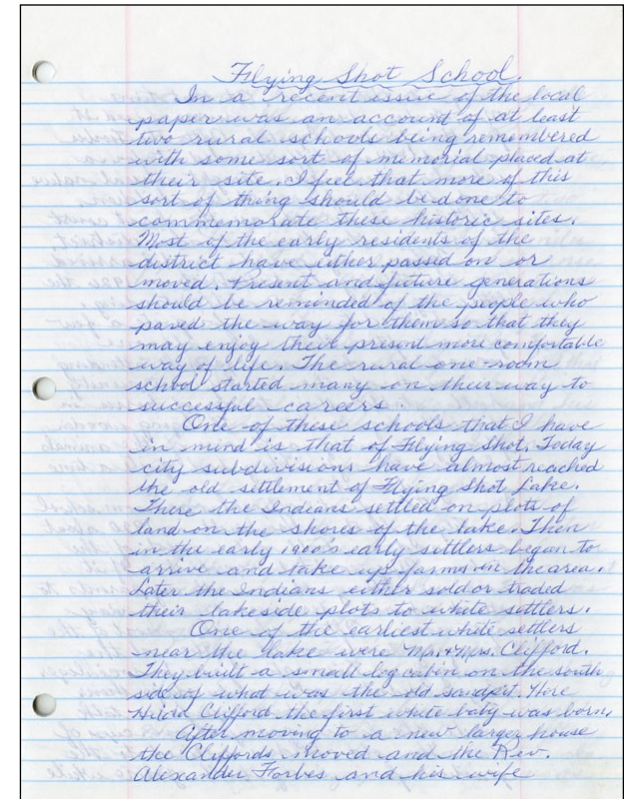 Flying Shot School.
In a recent issue of the local
paper was an account of at least
two rural schools being remembered
with some sort of memorial placed at
their site. I feel that more of this
sort of thing should be done to
commemorate these historic sites.
Most of the early residents of the
district have either passed on or
moved. Present and future generations
should be reminded of the people who
paved the way for them so that they
may enjoy their present more comfortable
way of life. The rural one-room
school started many on their way to
successful careers.
One of these schools that I have
in mind is that of Flying Shot. Today
city subdivisions have almost reached
the old settlement of Flying Shot Lake.
There the Indians settled on plots of
land on the shores of the lake. Then
in the early 1900's early settlers began to
arrive and take up farms in the area.
Later the Indians either sold or traded
their lakeside plots to white settlers.
One of the earliest white settlers
near the lake were Mr. & Mrs. Clifford.
They built a small log cabin on the south
side of what was the old sandpit. Here
Hilda Clifford the first white baby was born.
After moving to a new larger house
the Cliffords moved and the Rev.
Alexander Forbes and his wife